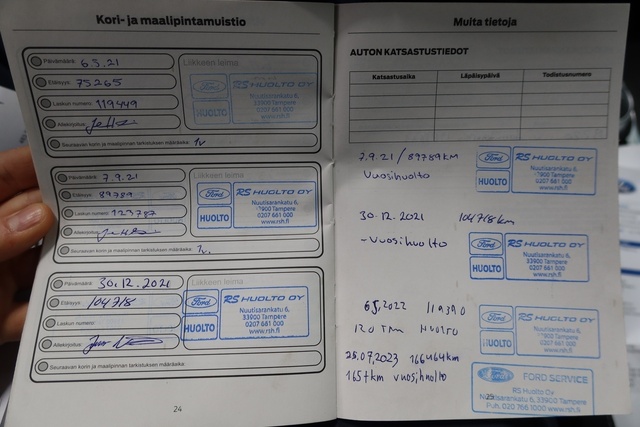 Kori- ja maalipintamuistio
Päivämäärä: 6.5.21
Liikkeen leima
Etäisyys: 75265
Laskun numero: 119449
Allekirjoitus:
Seuraavan korin ja maalipinnan tarkistuksen määräaika: 1v
Ford
HUOLTO
RS HUOLTO OY
Nuutisarankatu 6,
33900 Tampere
0207 661 000
www.rsh.fi
Päivämäärä: 7.9.21
Liikkeen leima
Etäisyys: 89789
Laskun numero: 123787
Allekirjoitus:
Seuraavan korin ja maalipinnan tarkistuksen määräaika: 1v.
Ford
HUOLTO
RS HUOLTO OY
Nuutisarankatu 6,
33900 Tampere
0207 661 000
www.rsh.fi
Päivämäärä: 30.12.2021
Liikkeen leima
Etäisyys: 104718
Laskun numero:
Allekirjoitus:
Seuraavan korin ja maalipinnan tarkistuksen määräaika:
Ford
HUOLTO
RS HUOLTO OY
Nuutisarankatu 6,
33900 Tampere
0207 661 000
www.rsh.fi
24
Muita tietoja
AUTON KATSASTUSTIEDOT
Katsastusaika Läpäisypäivä Todistusnumero
7.9.21 / 89789KM
Vuosihuolto
Ford
HUOLTO
RS HUOLTO OY
Nuutisarankatu 6,
33900 Tampere
0207 661 000
www.rsh.fi
30.12.2021 104718km
-Vuosihuolto
Ford
HUOLTO
RS HUOLTO OY
Nuutisarankatu 6,
33900 Tampere
0207 661 000
www.rsh.fi
2022 119390
120 Tkm HUOLTO
Ford
HUOLTO
RS HUOLTO OY
Nuutisarankatu 6,
33900 Tampere
0207 661 000
www.rsh.fi
25.07.2023 166464km
165tkm vuosihuolto
Ford
FORD SERVICE
RS Huolto Oy
Nuutisarankatu 6, 33900 Tampere
Puh. 020 766 1000 www.rsh.fi
25